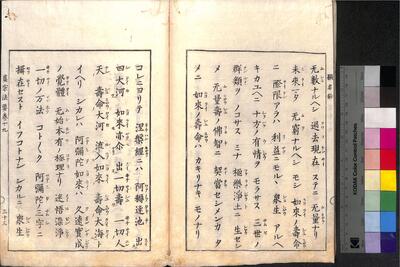 顯名鈔
无數ナルヘシ 過去現在 ステニ 无量ナリ
未來モマタ 无窮ナルヘシ モシ 如來ノ 壽命
ニ 際限アラハ 利益ニモルヽ 衆生 アルヘ
キカユヘニ 十方ノ 有情ヲ モラサス 三世ノ
群類ヲ ノコサス ミナ 極樂淨土ニ 生セシ
メ 无量壽ノ 佛智ニ 契當セシメンカタ
メニ 如來ノ 壽命ハ カキリナキ モノナリ
コレニヨリテ 涅槃經ニハ 阿耨達池 出
四大河 如來亦介 出一切壽 一切人
天 壽命大河 流入如來 壽命大海ト
イヘリ シカレハ 阿彌陀如來ハ 久遠實成
ノ 覺體 无始本有ノ 極理ナリ 迷悟染淨
一切ノ万法 コト〱ク 阿彌陀ノ 三字ニ
攝在セスト イフコトナシ シカルニ 衆生
KODAK Color Control Patches